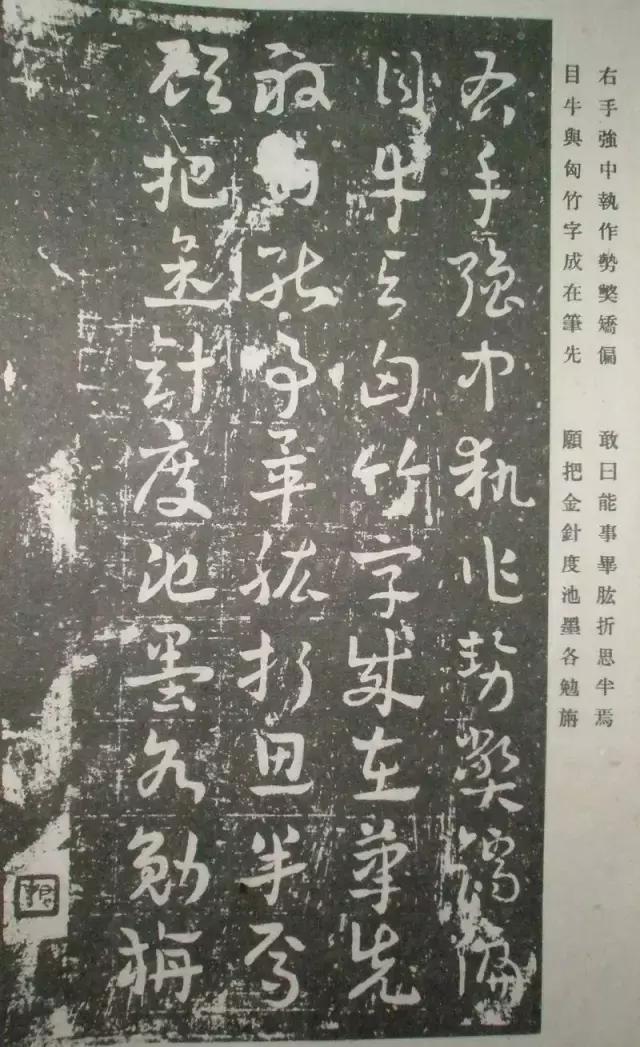 右手強中執作勢獘矯偏 敢曰能事畢肱折思半焉
目牛與匈竹字成在筆先 願把金針度池墨各勉旃
右手強中執作勢獘矯偏
目牛與匈竹字成在筆先
敢曰能事畢肱折思半焉
願把金針度池墨各勉旃